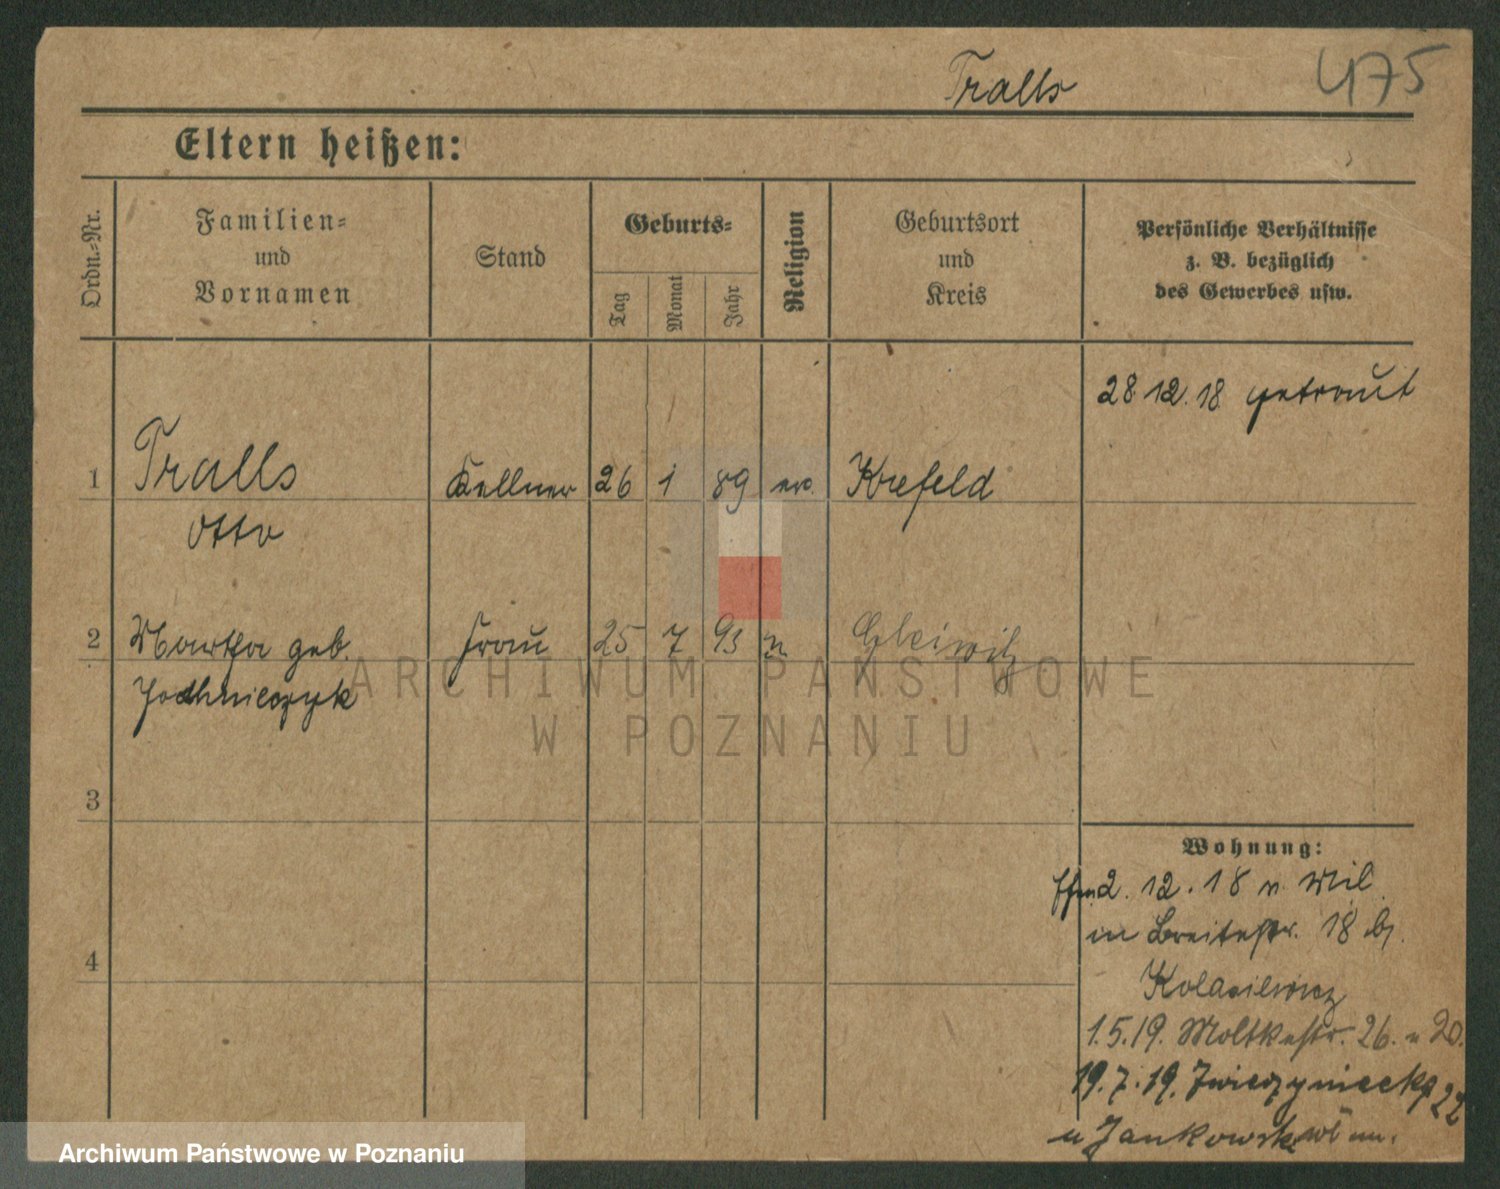 Tralls 475
Eltern heißen:
Ordn.-Nr. Familien- und Vornamen Stand Geburts- Tag Monat Jahr Religion Geburtsort und Kreis Persönliche Verhältnisse z. B. bezüglich des Gewerbes usw.
28 12. 18 getraut
1 Tralls Kellner 26 1 89 ev. Krefeld
Otto
2 Martha geb. Frau 25 7 93 Gleiwitz
ARCHIWUM PAŃSTWOWE
W POZNANIU
3
Wohnung:
2. 12. 18 v. Mil.
in Breitestr. 18 b/.
4
1.5.19. Moltkestr. 26. 20.
19.7.19. Zwierzyniecka 22
Archiwum Państwowe w Poznaniu